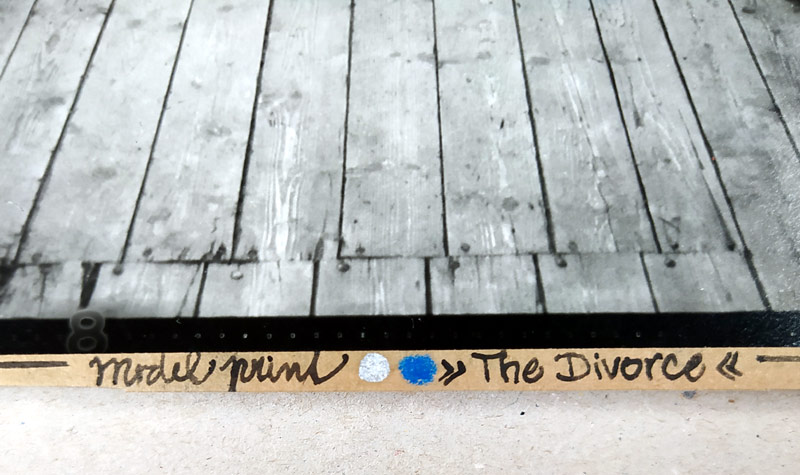 8
Model print » The Divorce «